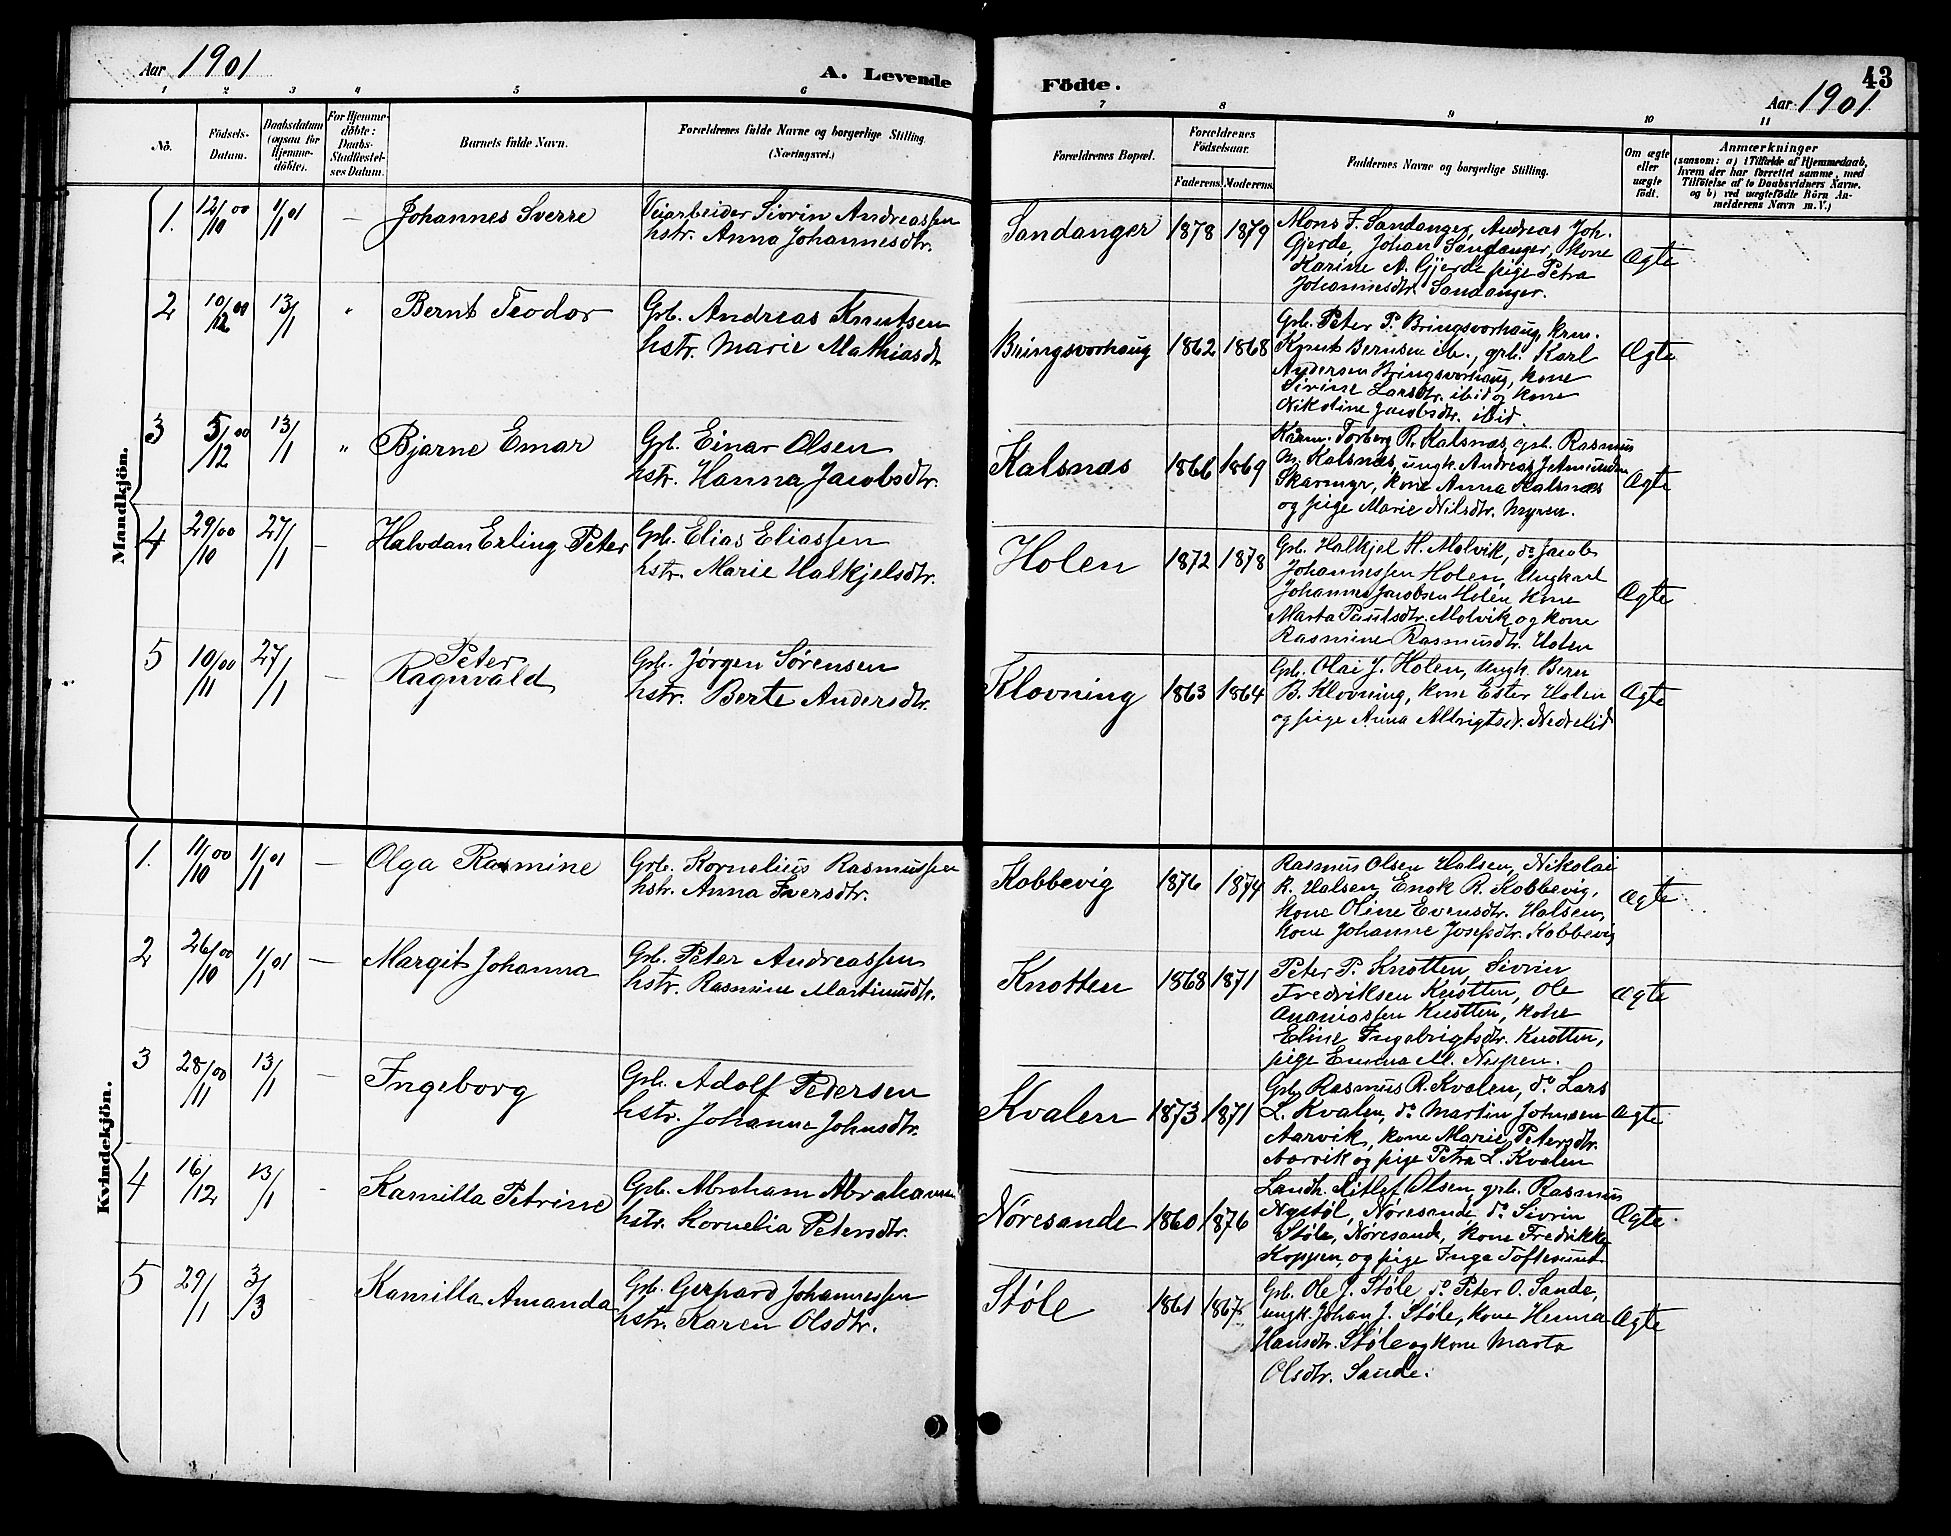 Aar 1901
A. Levende
Födte.
43
Aar 1901
1 2 3 4 5 6 7 8 9 10 11
No.
Födsels-
Datum.
Daabsdatum
(ogsaa for
Hjemme-
döbte).
For Hjemme-
döbte:
Daabs-
Stadfæstel-
ses Datum.
Barnets fulde Navn.
Forældrenes fulde Navne og borgerlige Stilling
(Næringsvei.)
Forældrenes Bopæl.
Forældrenes
Födselsaar.
Faderens. Moderens.
Faddernes Navne og borgerlige Stilling.
Om ægte
eller
uægte
födt.
Anmærkninger
(saasom: a) i Tilfælde af Hjemmedaab,
hvem der har forrettet samme, med
Tilföielse af to Daabsvidners Navne,
og b) ved uægtefödte Börn An-
melderens Navn m. V.)
Mandkjön.
1. 12/10 00 1/1 01 — Johannes Sverre
Veiarbeider Sivrin Andreassen
hstr. Anna Johannesdtr.
Sandanger 1878 1879
Mons F. Sandanger, Andreas Joh.
Gjerde, Johan Sandanger, kone
Karine A. Gjerde pige Petra
Johannesdtr. Sandanger.
Ægte
2 10/12 00 13/1 " Bernt Teodor
Grb. Andreas Knutsen
hstr. Marie Mathiasdtr
Bringsvorhaug 1862 1868
Grb. Peter P. Bringsvorhaug, krm.
Knut Berntsen ib., grb. Karl
Andersen Bringsvorhaug, kone
Sivine Larsdtr. ibid og kone
Nikoline Jacobsdtr. ibid.
Ægte
3 5/12 00 13/1 " Bjarne Emar
Grb. Einar Olsen
hstr. Hanna Jacobsdtr.
Kalsnæs 1866 1869
Kaarm. Torberg R. Kalsnæs, grb. Rasmus
M. Kalsnæs, ungk. Andreas J. Amundsen
Skarmyr, kone Anna Kalsnæs
og pige Marie Nilsdtr. Myren.
Ægte
4 29/10 00 27/1 — Halvdan Erling Peter
Grb. Elias Eliassen
hstr. Marie Halkjelsdtr.
Holen 1872 1878
Grb. Halkjel H. Molvik, do Jacob
Johannessen Holen, Ungkarl
Johannes Jacobsen Holen kone
Marta Paulsdtr. Molvik og kone
Rasmine Rasmusdtr. Holen
Ægte
5 10/11 00 27/1 — Peter
Ragnvald
Grb. Jørgen Sørensen
hstr. Berte Andersdtr.
Klovning 1863 1864
Grb. Olai J. Holen, Ungk. Bern
B. Klovning, kone Ester Holen
og pige Anna Albrigtsdr. Nedrelid
Ægte
Kvindekjön.
1. 11/10 00 1/1 01 — Olga Rasmine
Grb. Kornelius Rasmussen
hstr. Anna Iversdtr.
Kobbevig 1876 1874
Rasmus Olsen Halsen, Nikolai
R. Halsen, Enok R. Kobbevig,
kone Oline Evensdtr. Halsen,
kone Johanne Josefsdtr. Kobbevig
Ægte
2 26/10 00 1/1 01 — Margit Johanna
Grb. Peter Andreassen
hstr. Rasmine Martinusdtr.
Knotten 1868 1871
Peter P. Knotten, Sivrin
Fredriksen Knotten, Ole
Ananiassen Knotten, kone
Eline Ingebrigtsdtr. Knotten,
pige Emma M. Nespen.
Ægte
3 28/11 00 13/1 — Ingeborg
Grb. Adolf Pedersen
hstr. Johanne Johnsdtr.
Kvalen 1873 1871
Grb. Rasmus R. Kvalen, do Lars
L. Kvalen, do Martin Johnsen
Aarvik, kone Marie Petersdtr.
Aarvik og pige Petra L. Kvalen
Ægte
4 16/12 13/1 - Kamilla Petrine
Grb. Abraham Abrahamsen
hstr. Kornelia Petersdtr.
Nøresande 1860 1876
Landh. Ditlef Olsen, grb. Rasmus
Nystøl, Nøresande do Sivrin
Støle, Nøresande, kone Fredrikke
Koppen, og pige Inga Toftesund.
Ægte
5 29/1 3/3 - Kamilla Amanda
Grb. Gerhard Johannessen
hstr. Karen Olsdtr.
Støle 1861 1867
Grb. Ole J. Støle, do Peter O. Sande,
ungk. Johan J. Støle, kone Henna
Hansdtr. Støle og kone Marta
Olsdtr. Sande.
Ægte